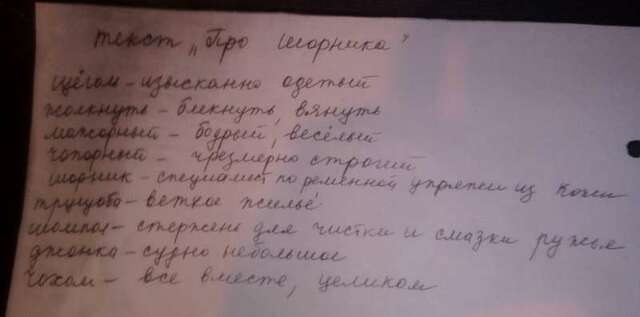 текст „Про шорника"
щёголь - изысканно одетый
жолкнуть - блекнуть, вянуть
мажорный - бодрый, весёлый
чопорный - чрезмерно строгий
шорник - специалист по ременной упряжи из кожи
трущоба - ветхое жильё
шомпол - стержень для чистки и смазки ружья
джонка - судно небольшое
чохом - все вместе, целиком